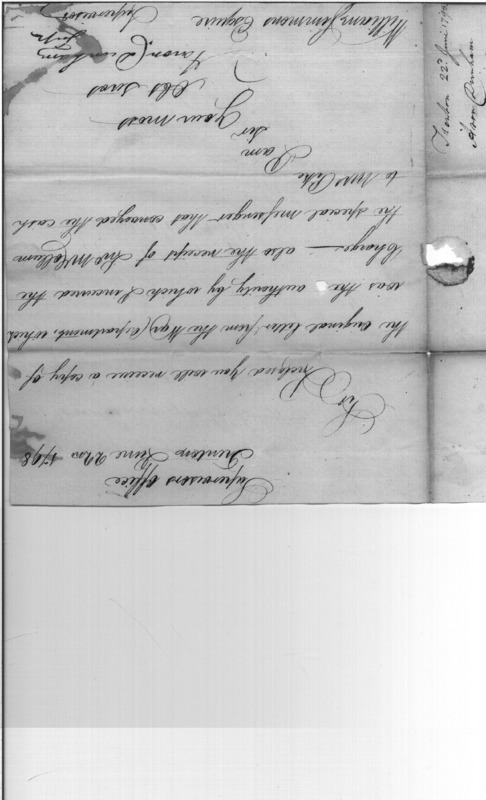 Supervisors Office
Trenton June 22nd 1798
Sir
Inclosed you will receive a copy of
the original letter from the War Department, which
was the authority by which I incurred the
Charge — also the receipt of Jno McCollum
the special messenger that conveyed the cash
to Mr Pike
I am
Sir
Your most
Obt Servt
Aaron Dunham
Supr
William Simmons Esquire
Trenton 22d June 1798
Aaron Dunham
Supervisor